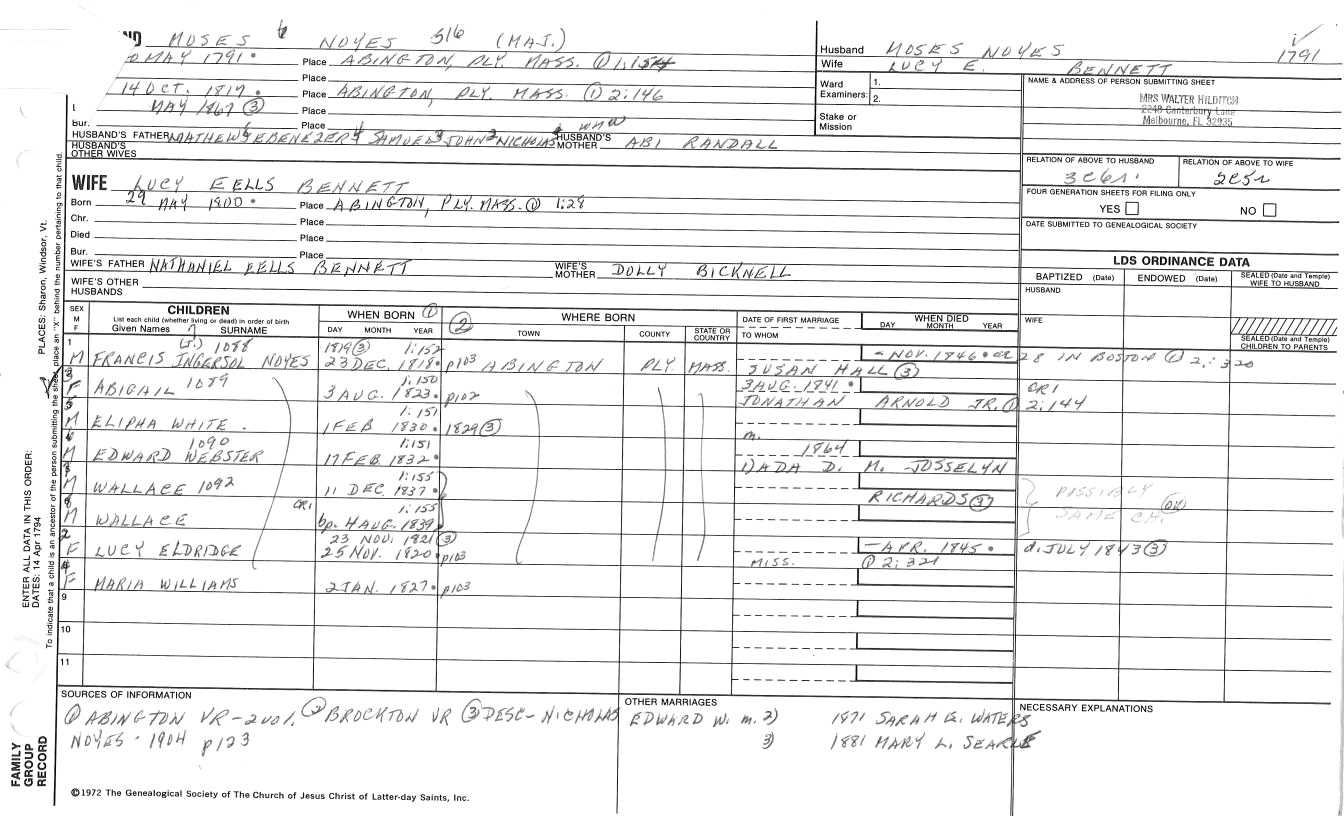 ND MOSES 6 NOYES 516 (MAJ.)
MAY 1791. Place ABINGTON, PLY. MASS. ① 1:154
Place
14 OCT. 1817. Place ABINGTON, PLY. MASS. ① 2:146
MAY 1867 ③ Place
Bur. Place
HUSBAND'S FATHER MATHEW EBENEZER SAMUEL JOHN NICHOLAS HUSBAND'S MOTHER ABI RANDALL
HUSBAND'S OTHER WIVES
Husband MOSES NOYES 1791
Wife LUCY E. BENNETT
Ward Examiners: 1.
2.
Stake or Mission
NAME & ADDRESS OF PERSON SUBMITTING SHEET
MRS WALTER HILDITCH
2248 Canterbury Lane
Melbourne, FL 32935
RELATION OF ABOVE TO HUSBAND RELATION OF ABOVE TO WIFE
3C6r. 2C5r
FOUR GENERATION SHEETS FOR FILING ONLY
YES NO
DATE SUBMITTED TO GENEALOGICAL SOCIETY
WIFE LUCY EELLS BENNETT
Born 29 MAY 1800. Place ABINGTON, PLY. MASS. ① 1:28
Chr. Place
Died Place
Bur. Place
WIFE'S FATHER NATHANIEL EELLS BENNETT WIFE'S MOTHER DOLLY BICKNELL
WIFE'S OTHER HUSBANDS
LDS ORDINANCE DATA
BAPTIZED (Date) ENDOWED (Date) SEALED (Date and Temple) WIFE TO HUSBAND
HUSBAND
WIFE
SEALED (Date and Temple) CHILDREN TO PARENTS
SEX M F
CHILDREN
List each child (whether living or dead) in order of birth
Given Names 7 SURNAME
WHEN BORN ①
DAY MONTH YEAR
② WHERE BORN
TOWN COUNTY STATE OR COUNTRY
DATE OF FIRST MARRIAGE
TO WHOM
WHEN DIED
DAY MONTH YEAR
1 1088 1819 ③ 1:152
M FRANCIS INGERSOL NOYES 23 DEC. 1818. p103 ABINGTON PLY. MASS. SUSAN HALL ③ - NOV. 1846. OR 28 IN BOSTON ① 2:320
3 1089 1:150 3 AUG. 1841. CR1
F ABIGAIL 3 AUG. 1823. p102 JONATHAN ARNOLD JR. ① 2:144
5 1:151
M ELIPHA WHITE. 1 FEB 1830. 1829 ③
6 1090 1:151 m. 1864
M EDWARD WEBSTER 17 FEB 1832. 1) ADA D. M. JOSSELYN
7 1:155
M WALLACE 1092 11 DEC. 1837. RICHARDS ③ POSSIBLY
8 CR1 1:155
M WALLACE bp. 4 AUG. 1839. SAME CH. OK
2 23 NOV. 1821 ③
F LUCY ELDRIDGE 25 NOV. 1820. p103 - APR. 1845. d. JULY 1843 ③
4 MISS. ① 2:321
F MARIA WILLIAMS 2 JAN. 1827. p103
9
10
11
SOURCES OF INFORMATION
① ABINGTON VR - 2 VOL, ② BROCKTON VR ③ DESC- NICHOLAS
NOYES - 1904 p123
OTHER MARRIAGES
EDWARD W. m. 2) 1871 SARAH G. WATERS
3) 1881 MARY L. SEARLE
NECESSARY EXPLANATIONS
©1972 The Genealogical Society of The Church of Jesus Christ of Latter-day Saints, Inc.
FAMILY GROUP RECORD
ENTER ALL DATA IN THIS ORDER:
DATES: 14 Apr 1794
PLACES: Sharon, Windsor, Vt.
To indicate that a child is an ancestor of the person submitting the sheet, place an "X" behind the number pertaining to that child.